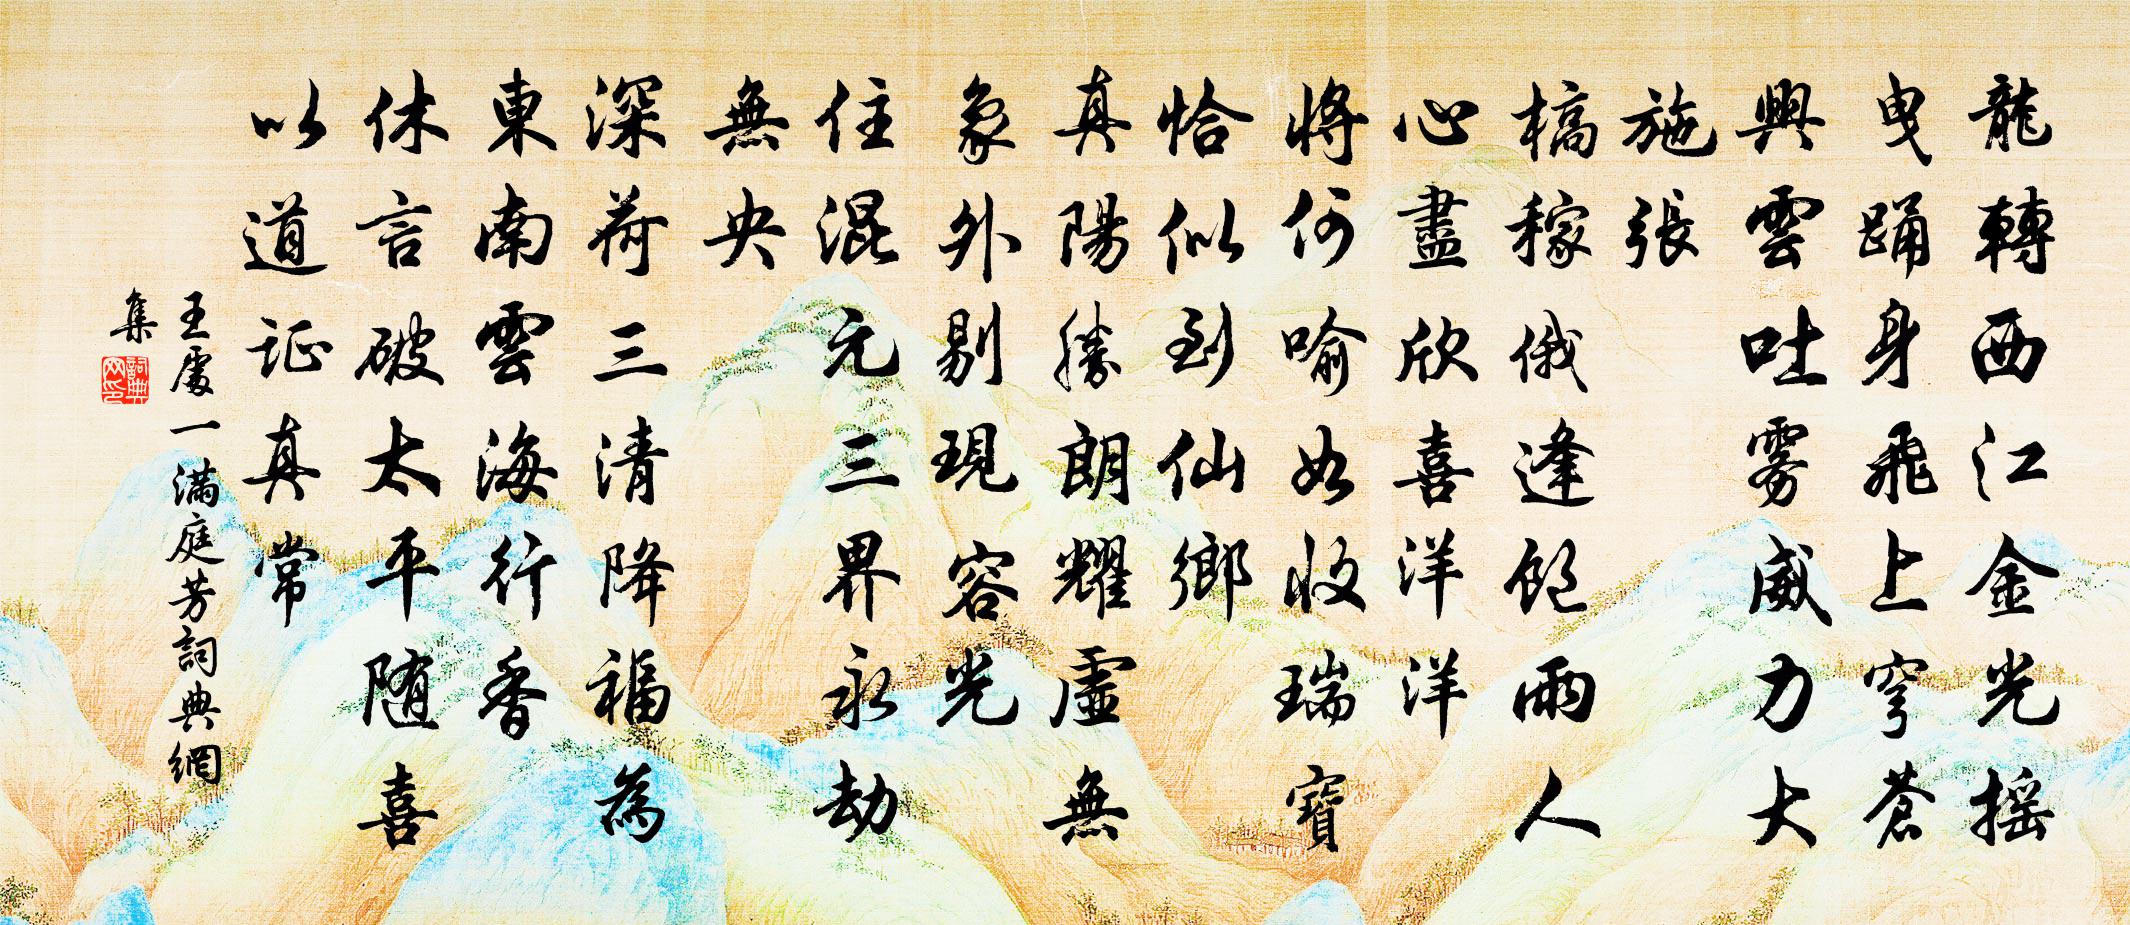 龍轉西江金光搖
曳踊身飛上穹蒼
興雲吐雾威力大
施張
槁稼俄逢飽雨人
心盡欣喜洋洋
將何喻如收瑞寶
恰似到仙鄉
真陽勝朗耀虛無
象外剔現容光
住混元三界永劫
無央
深荷三清降福為
東南雲海行香
休言破太平随喜
以道证真常
王處一满庭芳詞典網
集
詞典